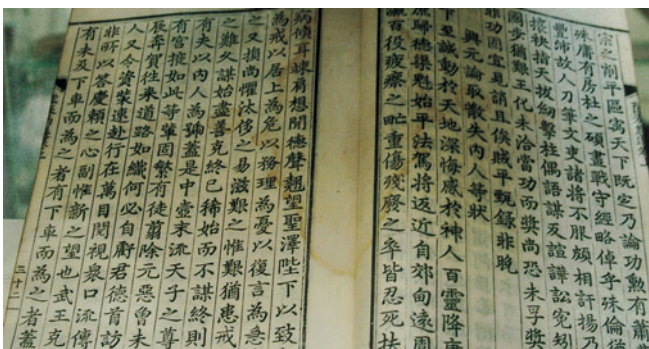 宗之削平區寓天下既定乃論功勳有蕭
殊庸有房杜之碩畫戰守經略倬乎殊倫徒
疊師故人刀筆文吏諸將不服頗相訐揚乃
攘袂指天拔劒擊柱偶語謀反諠譁訟寃
國步猶艱王化未洽當功而獎尚恐未孚獎
非功固宜見誚且俟賊平甄錄非晚
興元論取散失内人等狀
下至誠動於天地深悔感於神人百靈降康
庶歸德渠兇始平法駕將返近自郊甸遠周
瀛百役疲瘵之甿重傷殘廢之卒皆忍死扶
病傾耳竦肩想聞德聲翹望聖澤陛下以致
為戒以居上為危以務理為憂以復言為急
之又損尚懼汰侈之易滋艱之惟艱猶患戒
之難久謀始盡善克終已稀始而不謀終則
有夫以内人為號蓋是中壼末流天子之尊
有宮掖如此等輩固繁有徒翦除元惡曾未
辰奔賀往來道路如織何必自虧君德首訪
人又令資裝速赴行在萬目閱視衆口流傳
非所以荅慶賴之心副惟新之望也武王克
有未及下車而為之者有下車而為之者蓋
三十二